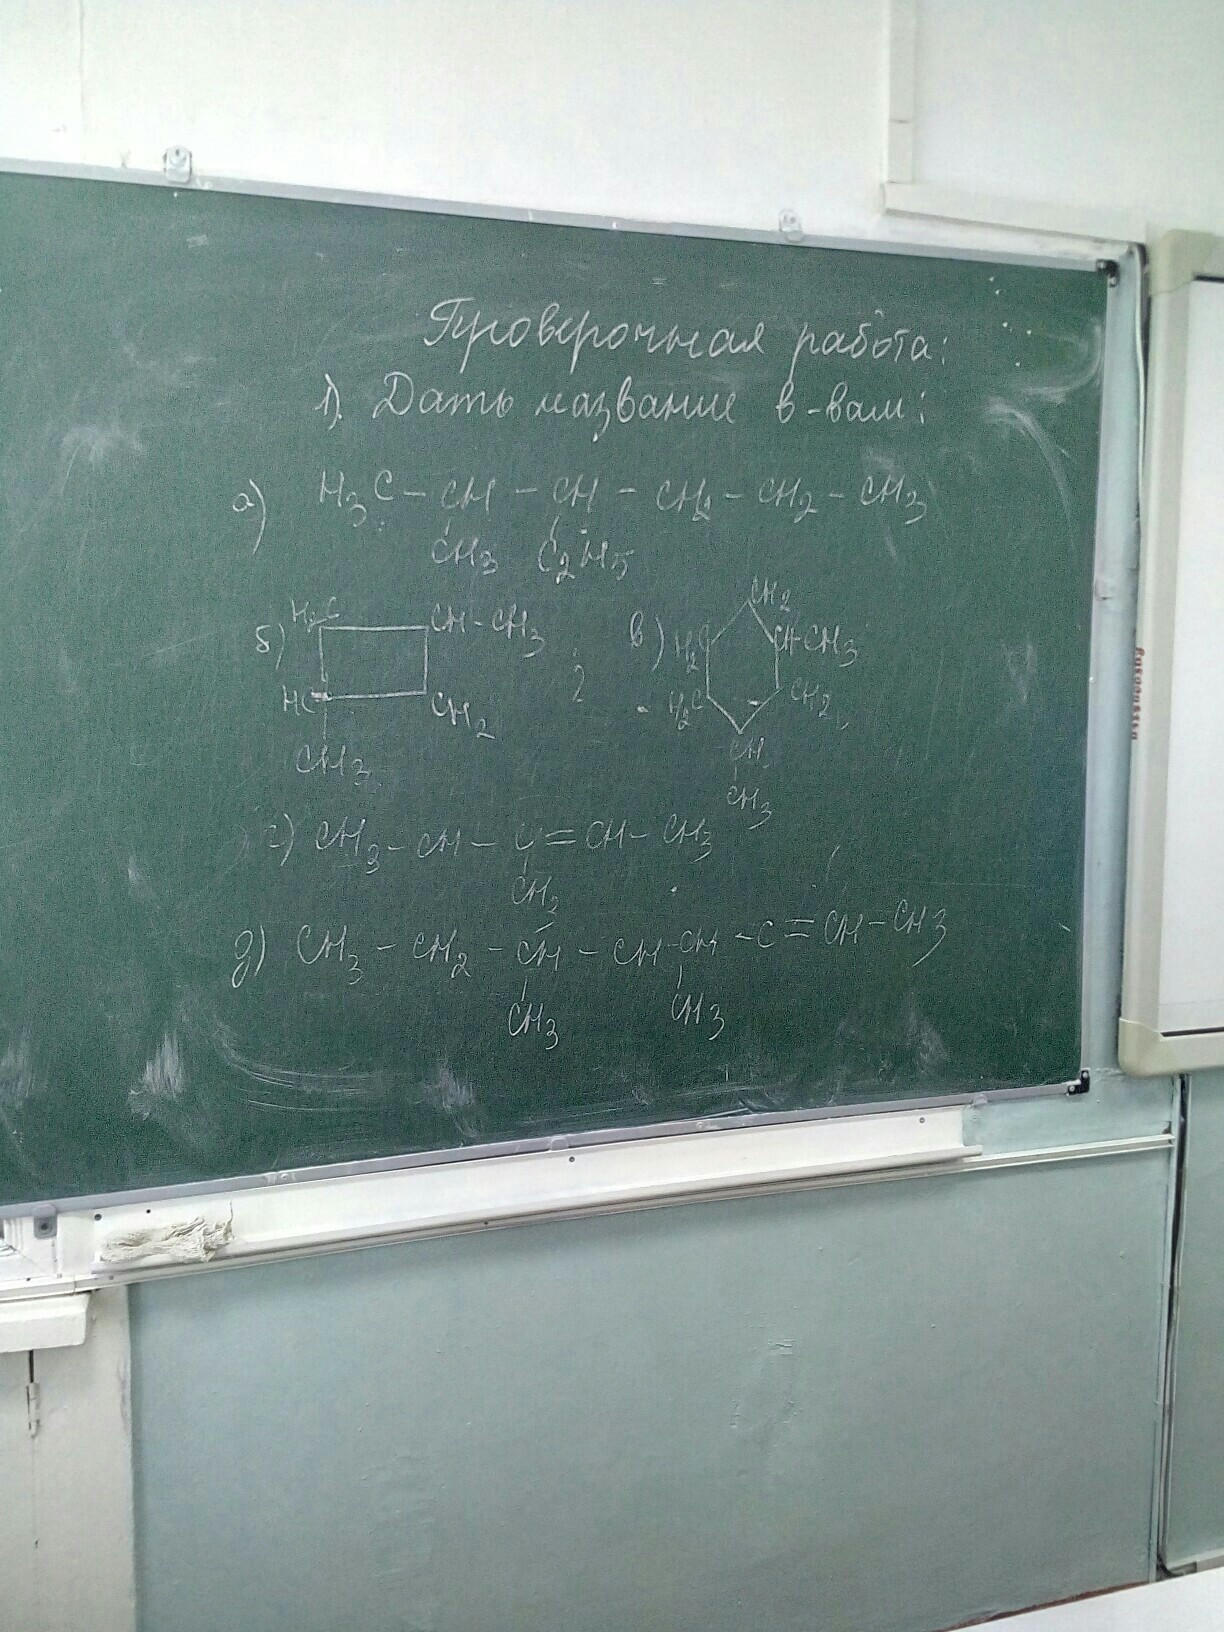 Проверочная работа:
1). Дать название в-вам:
а) H₃C – CH – CH – CH₂ – CH₂ – CH₃
CH₃ C₂H₅
б) H₂C CH-CH₃
HC CH₂
CH₃
в) CH₂
H₂C CH-CH₃
H₂C CH₂
CH
CH₃
г) CH₃ – CH – C = CH – CH₃
CH₂
д) CH₃ – CH₂ – CH – CH – CH – C = CH – CH₃
CH₃ CH₃